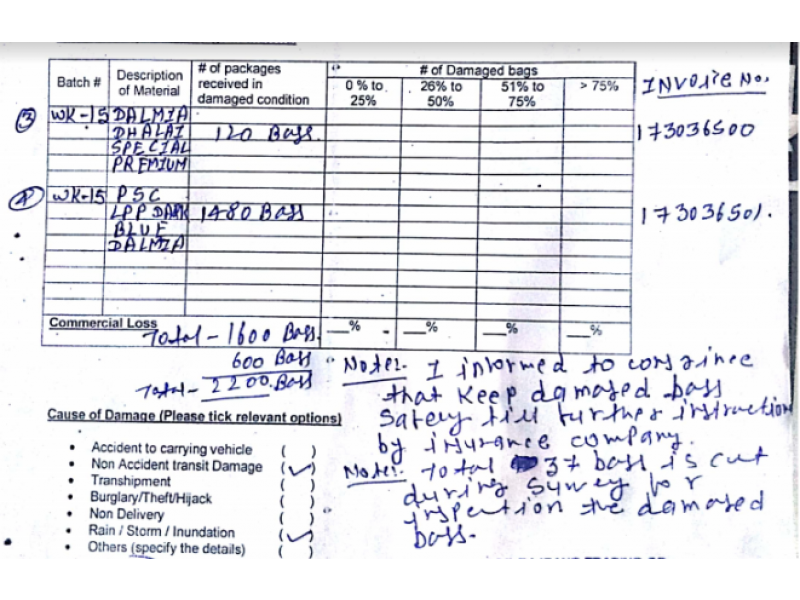 Batch # Description of Material # of packages received in damaged condition # of Damaged bags INVOICE No.
0 % to 25% 26% to 50% 51% to 75% > 75%
③ WK-15 DALMIA
DHALAI 120 Bags. 173036500
SPECIAL
PREMIUM
④ WK-15 PSC
LPP DARK 1480 Bags 173036501.
BLUE
DALMIA
Commercial Loss __% __% __% __%
Total - 1600 Bags.
600 Bags
Total - 2200 Bags
Note:- I informed to consinee
that Keep damaged bags
Safely till further instruction
by insurance company.
Note:- Total 37 bags is cut
during Survey for
inspection the damaged
bags.
Cause of Damage (Please tick relevant options)
• Accident to carrying vehicle ( )
• Non Accident transit Damage (✓)
• Transhipment ( )
• Burglary/Theft/Hijack ( )
• Non Delivery ( )
• Rain / Storm / Inundation (✓)
• Others (specify the details) ( )